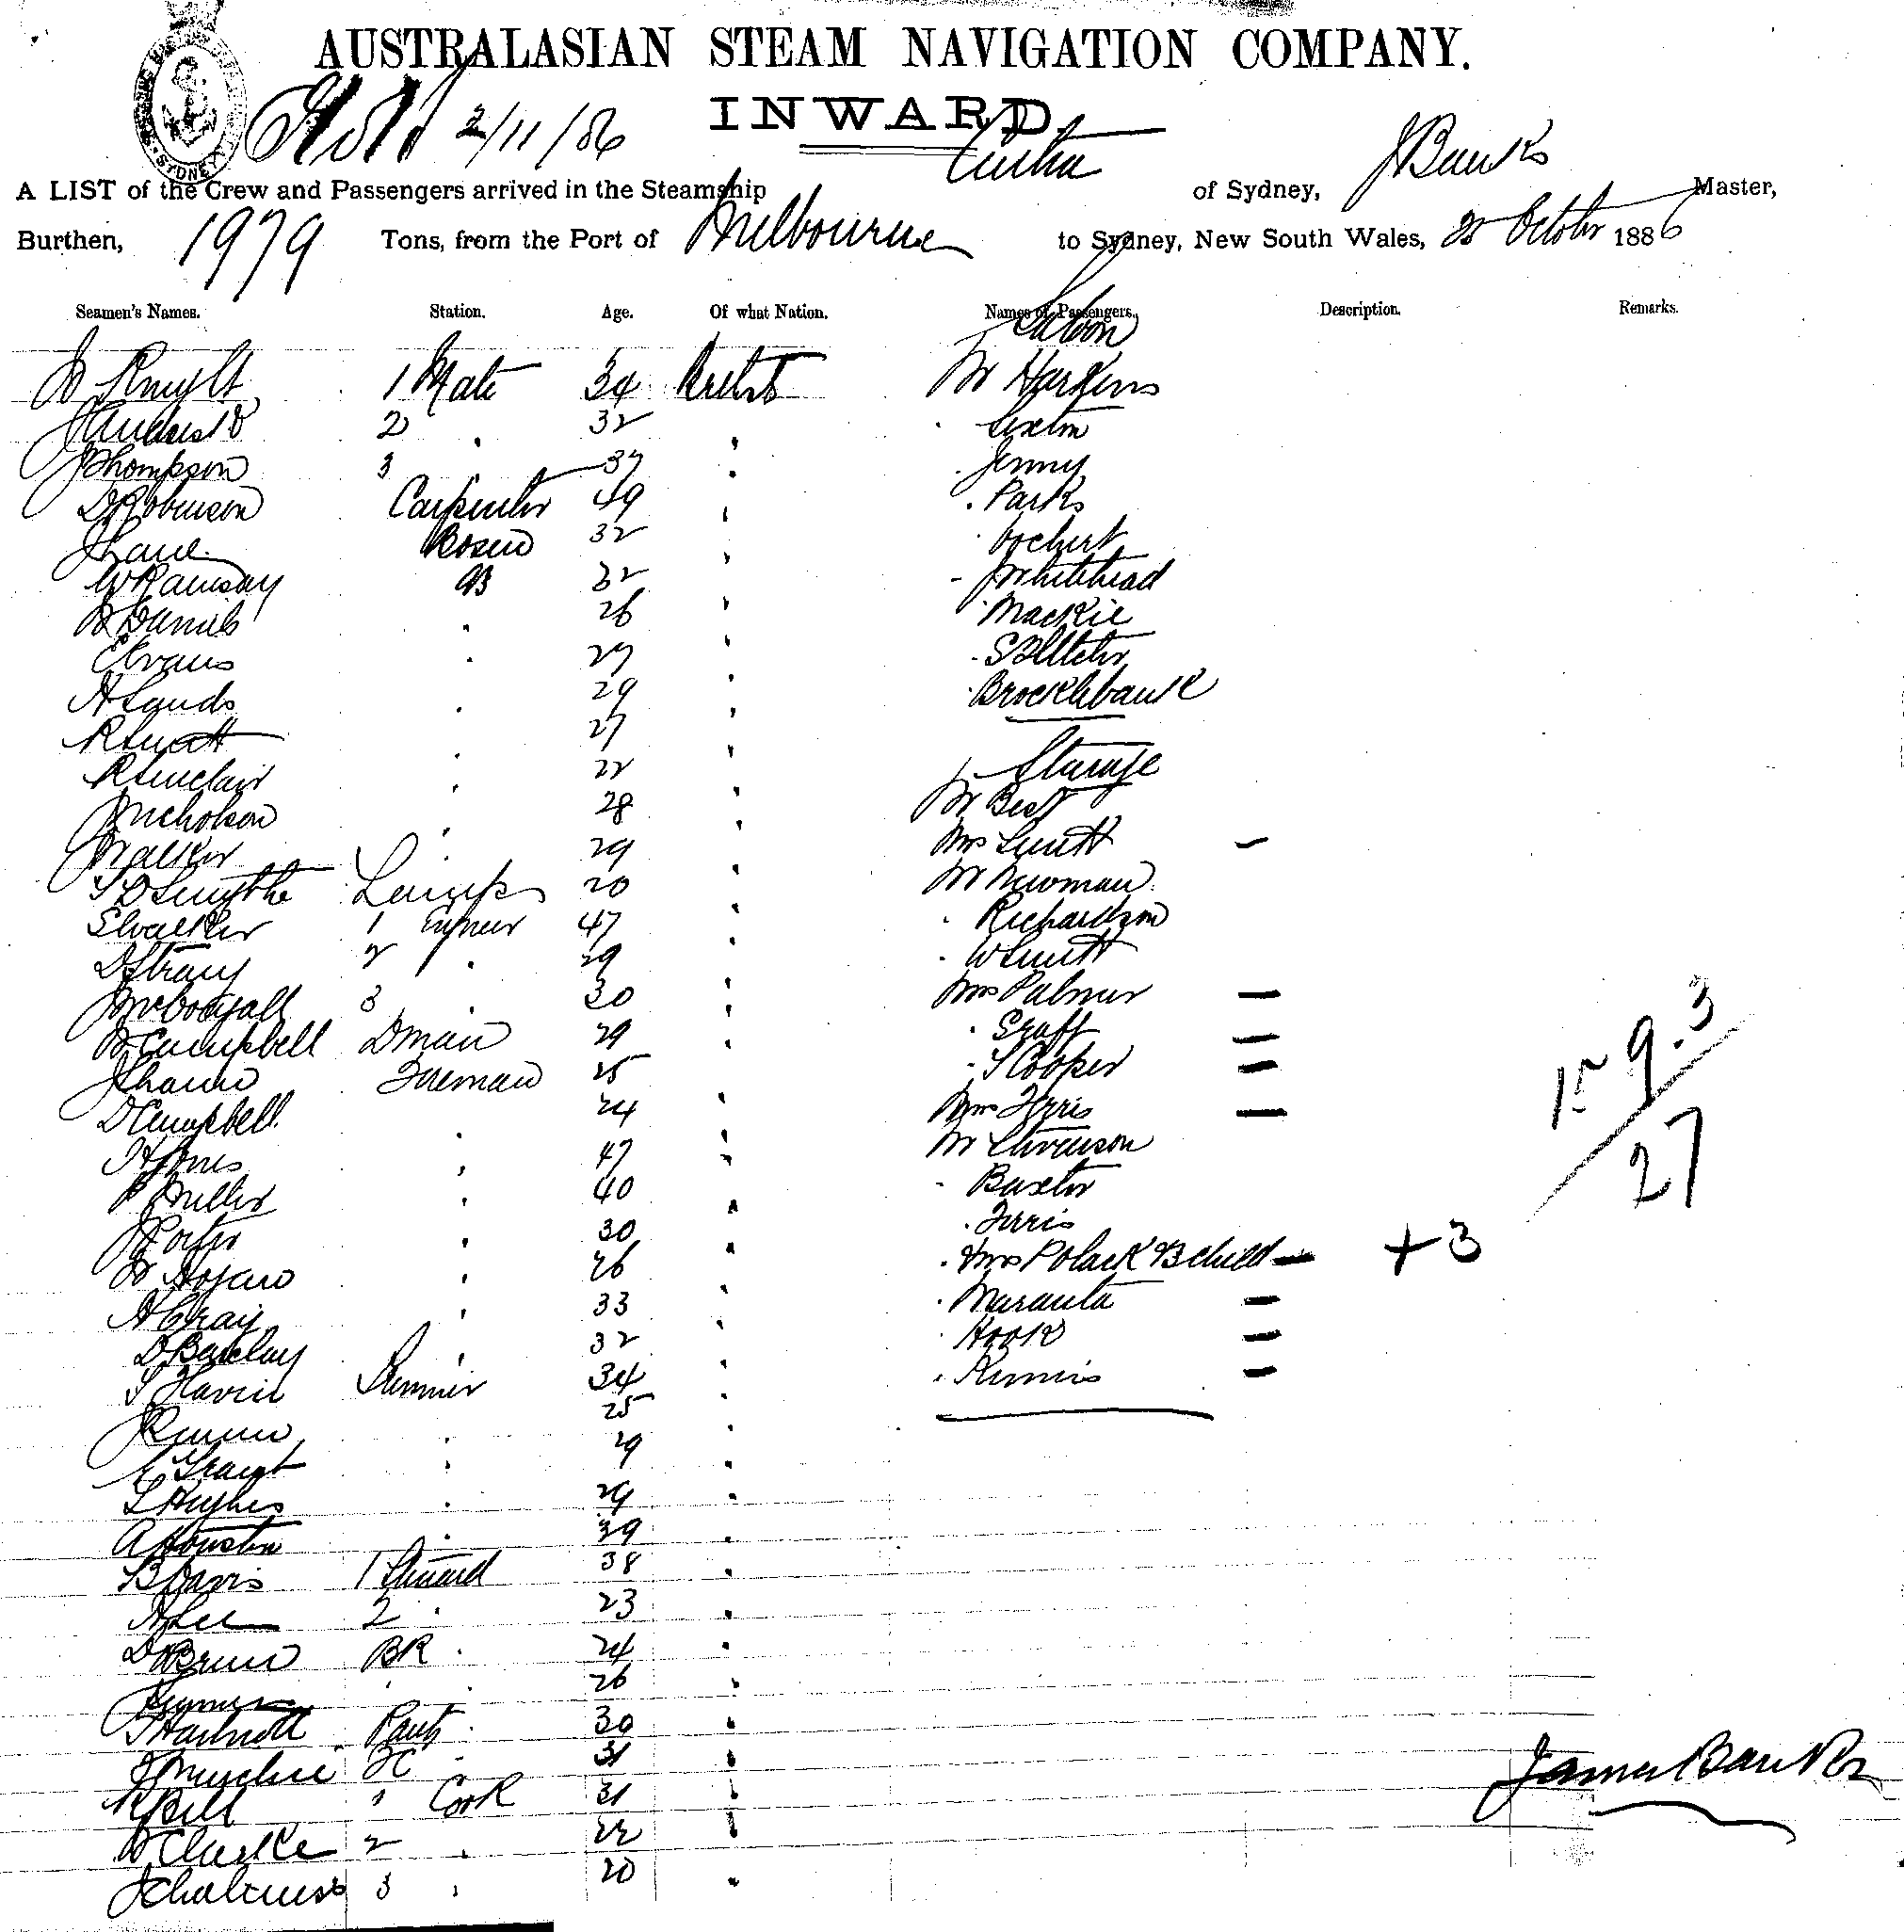 AUSTRALASIAN STEAM NAVIGATION COMPANY.
INWARD
2/11/86
SYDNEY
A LIST of the Crew and Passengers arrived in the Steamship of Sydney, J Banks Master,
Burthen, 1979 Tons, from the Port of Melbourne to Sydney, New South Wales, October 1886
Seamen's Names. Station. Age. Of what Nation. Names of Passengers. Description. Remarks.
Saloon
W Knight 1 Mate 34 British Mr Harkins
2 " 32 " " Sexton
J Thompson 3 37 " " Jenny
D Robinson Carpenter 49 " " Parks
J Lane Bosun 32 "
W Ramsay AB 32 " " Whitehead
W Daniels " 26 " " Mackie
E Evans " 27 "
A Sands " 29 " " Brocklebank
R Smith " 27 "
Steerage
R Sinclair " 22 " Mr Best
J Nicholson " 28 " Mrs Smith –
J Walker " 29 " Mr Newman
S D Smythe Lamps 20 " " Richardson
S Walker 1 Engineer 47 " " W Smith
D Strang 2 " 29 " Mrs Palmer –
3 " 30 " " Graff –
W Campbell Dman 29 " " S Cooper –
Fireman 25 " Mrs Ferris –
D Campbell " 24 " Mr Stevenson
H Jones " 47 " " Baxter
P Miller " 40 " " Ferris
J Porter " 30 " " Mrs Polack & 3 child – + 3
W Hogan " 26 " –
A Craig " 33 " " Hook –
D Barclay " 32 " –
Trimmer 34 "
" 25 "
E Grant " 29 "
L Hughes " 29 "
A Houston " 39 "
B Davis 1 Steward 38 "
A Lee 2 " 23 "
BR " 24 "
" " 26 "
T Hartnett Pants " 30 "
" 31 "
R Bell " Cook 31 "
W Clarke 2 " 22 "
J Chalmers 3 " 20 "
9.3
27
James Banks